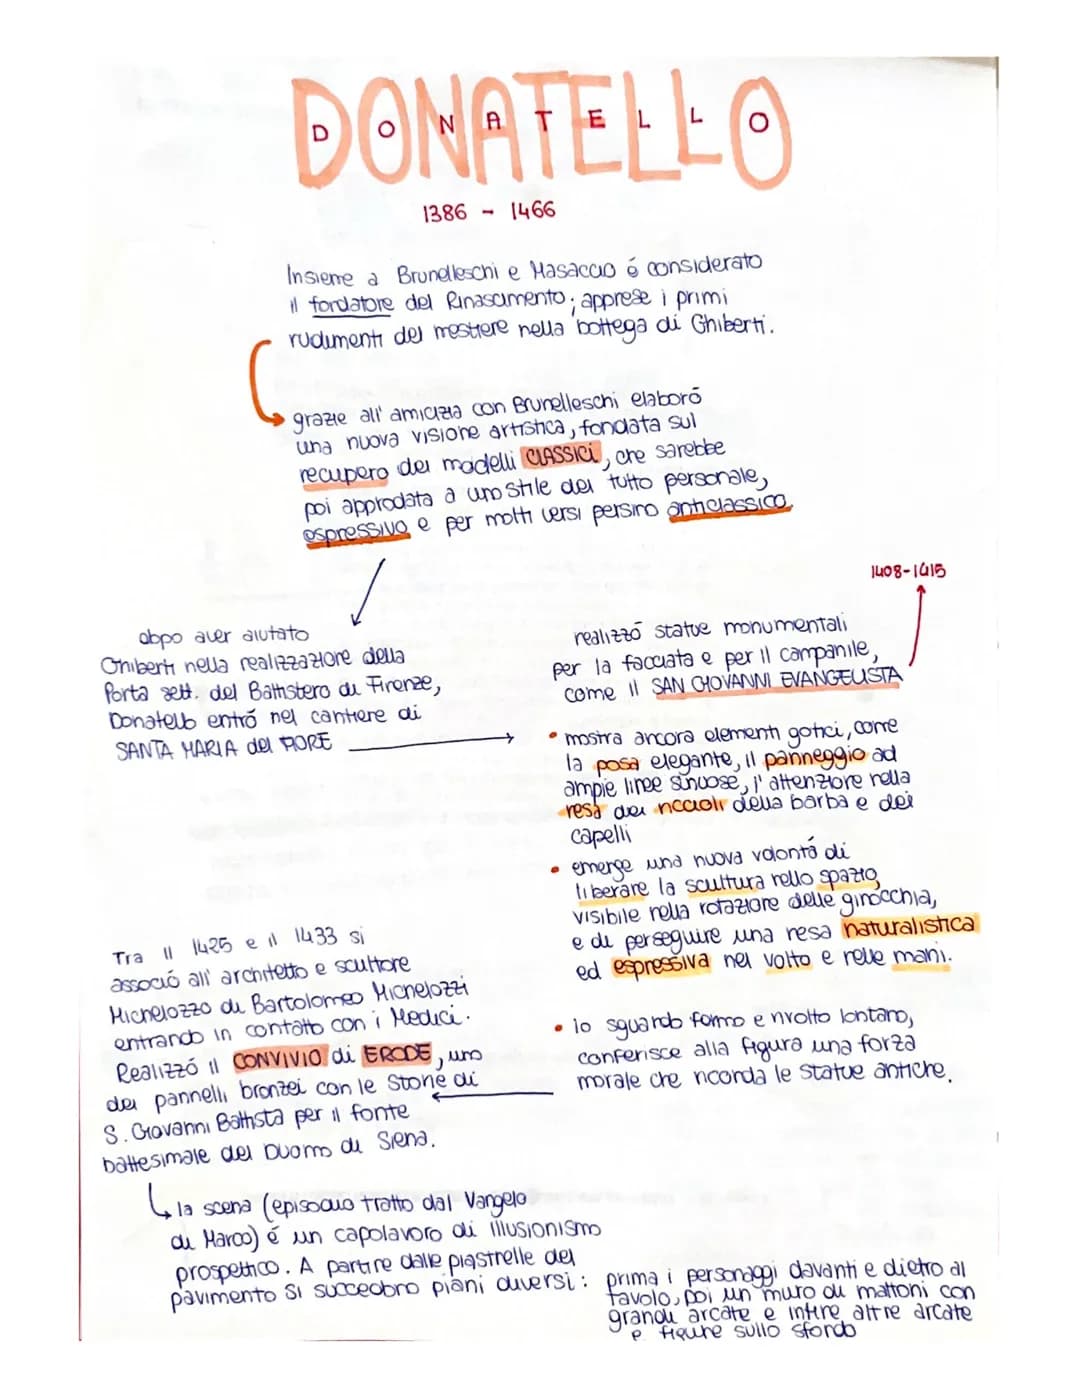 DONATELLO
D O N A T E L L O
1386 - 1466
Insieme a Brunelleschi e Masaccio é considerato
il fondatore del Rinascimento; apprese i primi
rudimenti del mestiere nella bottega di Ghiberti.
grazie all'amicizia con Brunelleschi elaboró
una nuova visione artistica, fondata sul
recupero dei modelli CLASSICI, che sarebbe
poi approdata a uno stile del tutto personale,
espressivo e per molti versi persino anticlassico.
1408-1415
dopo aver aiutato
Ghiberti nella realizzazione della
Porta sett. del Battistero di Firenze,
Donatello entró nel cantiere di
SANTA MARIA del FIORE
realizzó statue monumentali
per la facciata e per il campanile,
come il SAN GIOVANNI EVANGELISTA
• mostra ancora elementi gotici, come
la posa elegante, il panneggio ad
ampie linee sinuose, l'attenzione nella
resa dei riccioli della barba e dei
capelli
• emerge una nuova volontá di
liberare la scultura nello spazio,
visibile nella rotazione delle ginocchia,
e di perseguire una resa naturalistica
ed espressiva nel volto e nelle mani.
• lo sguardo fermo e rivolto lontano,
conferisce alla figura una forza
morale che ricorda le statue antiche.
Tra il 1425 e il 1433 si
associó all'architetto e scultore
Michelozzo di Bartolomeo Michelozzi
entrando in contatto con i Medici.
Realizzó il CONVIVIO di ERODE, uno
dei pannelli bronzei con le Storie di
S. Giovanni Battista per il fonte
battesimale del Duomo di Siena.
la scena (episodio tratto dal Vangelo
di Marco) é un capolavoro di illusionismo
prospettico. A partire dalle piastrelle del
pavimento si succedono piani diversi:
prima i personaggi davanti e dietro al
tavolo, poi un muro di mattoni con
grandi arcate e infine altre arcate
e figure sullo sfondo